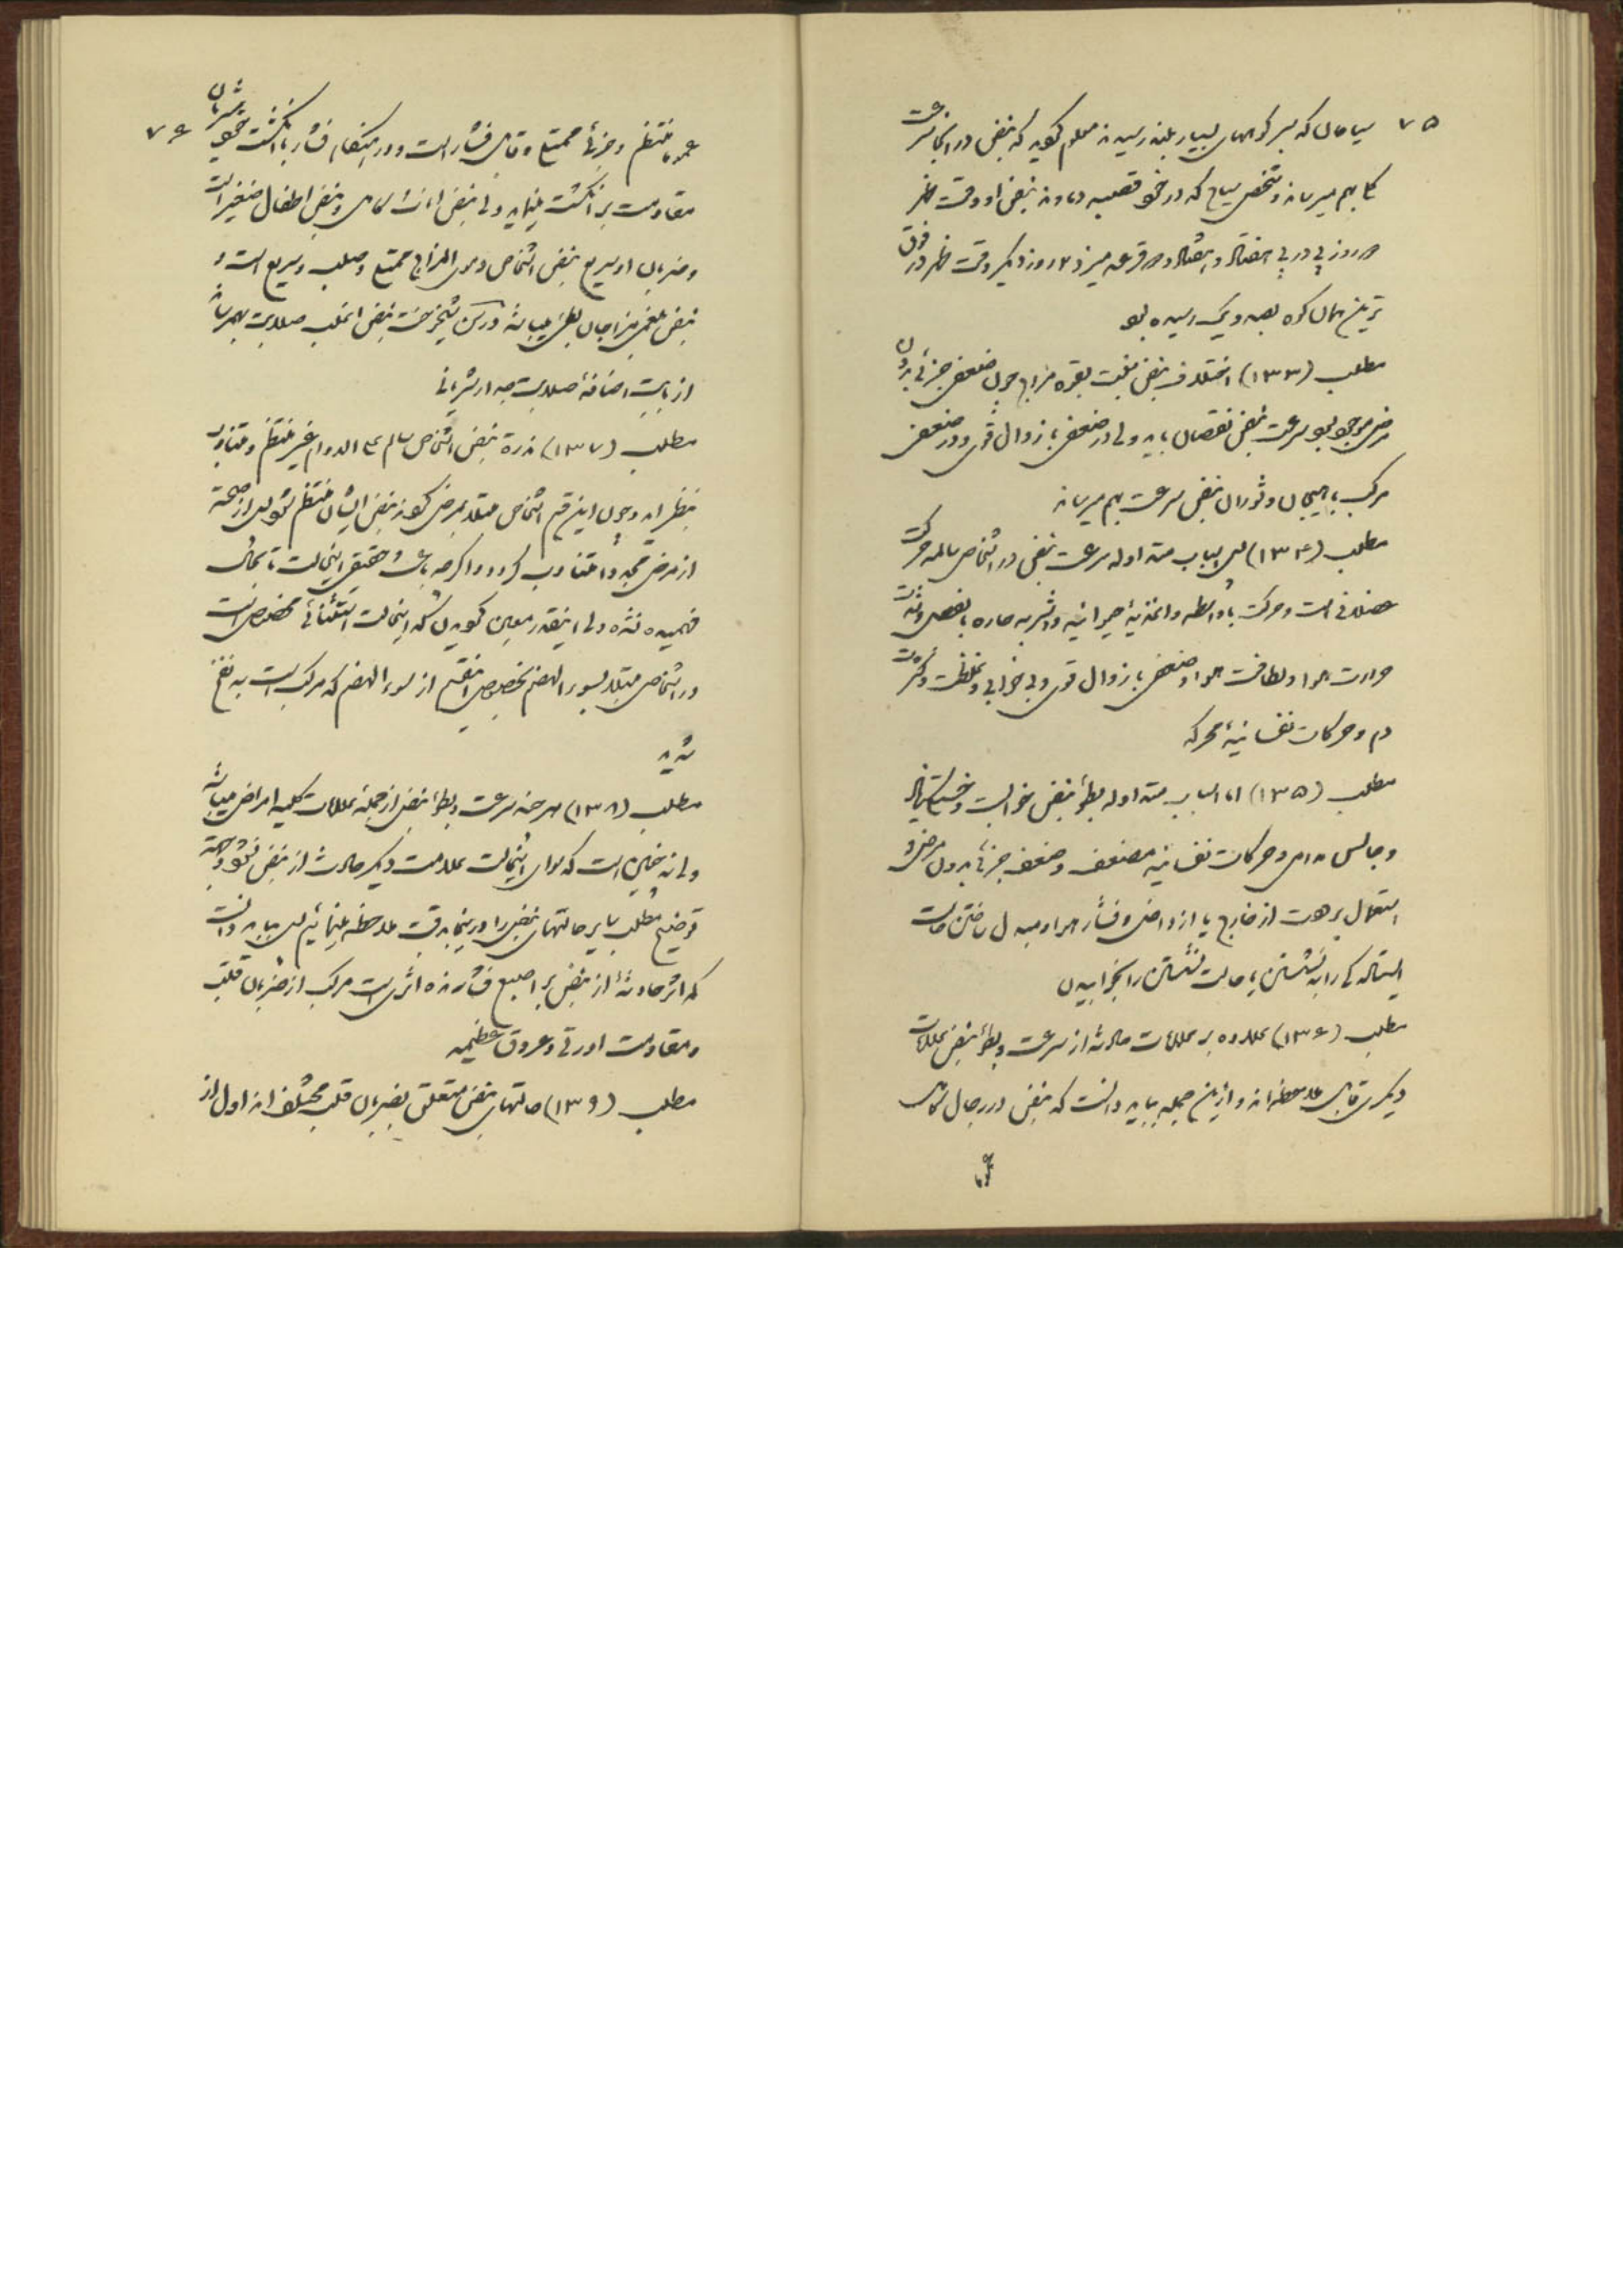 ۷۵
سیاحان که بسر کوههای بسیار بلند رسیدند معلوم کردید که نبض در آنجا سرعت
کا بهم میرساند و شخص سیاح که در خو قصبه دماوند نبض او وقت ظهر
روز پی در پی هفتاد و هشتاد و قرعه میزد روز دیگر وقت ظهر در فوق
ترین مکان کوه بصد و یک رسیده بو
مطلب (۱۳۳) اختلاف نبض بقوه مزاج چون ضعف جزئی بدون
مرض موجود بو سرعت نبض نقصان یابد ولی در ضعف با زوال قوی و در ضعف
مرکب با هیجان و ثوران نبض سرعت بهم میرساند
مطلب (۱۳۴) پس اسباب متداوله سرعت نبض در اشخاص سالمه حرکت
عضلانی است و حرکت با واسطه و اغذیهٔ حیوانیه و اشربه حاره بالخصوص شدت
حرارت هوا و لطافت هوا و ضعف با زوال قوی و بی خوابی و غلظت و کثرت
دم و حرکات نفسانیهٔ محرکه
مطلب (۱۳۵) اما اسباب متداوله بطوء نبض خوابست و خستگیها
و جالس و حرکات نفسانیه مضعف و ضعف جزئی بدون مرض و
استعمال برودت از خارج یا از داخل و فشار هوا و مبدل ساختن حالت
ایستاده کی را به نشستن یا حالت نشستن را بخوابیدن
مطلب (۱۳۶) علاوه بر علامات حادثه از سرعت و بطوء نبض علامات
دیگری قابل ملاحظه اند و ازین جمله بباید دانست که نبض در رجال کامل
۷۶
عموما منتظم و جزئی ممتلی و قابل فشار است و در هنگام فشار با انگشت شریان
مقاومت بر انگشت مینماید ولی نبض اناث کامل و نبض اطفال صغیر است
و ضربان او سریع نبض اشخاص دموی المزاج ممتلی و صلب و سریع است و
نبض بلغمی مزاجان بطئ میباشد در سن شیخوخت نبض اغلب صلابت بهم رساند
از بابت اضافهٔ صلابت جدار شریانی
مطلب (۱۳۷) ندرة نبض اشخاص سالم علی الدوام غیر منتظم و متناوب
بنظر آید و چون این قسم اشخاص مبتلا بمرض کردند نبض ایشان منتظم شو پس از صحت
از مرض مجددا متناوب کردد و اکرچه باعث حقیقی اینحالت تا بحال
فهمیده نشده ولی اینقدر معین کردید که اینحالت استثنائی مخصوص است
در اشخاص مبتلا بسوء الهضم بخصوص آنقسم از سوء الهضم که مرکب است به نفخ
شدید
مطلب (۱۳۸) هر چند سرعت و بطوء نبض از جملهٔ علامات کلیه امراض میباشد
ولی نه چنین است که سوای اینحالت علامت دیگر حادث از نبض نشود و بجهة
توضیح مطلب سایر حالتهای نبض را در اینجا بدقت ملاحظه مینمائیم پس بباید دانست
که اثر حادثهٔ از نبض بر اصبع فشارنده اثریست مرکب از ضربان قلب
و مقاومت اورتی و عروق عظیمه
مطلب (۱۳۹) حالتهای نبض متعلق بضربان قلب مختلف اند اول از